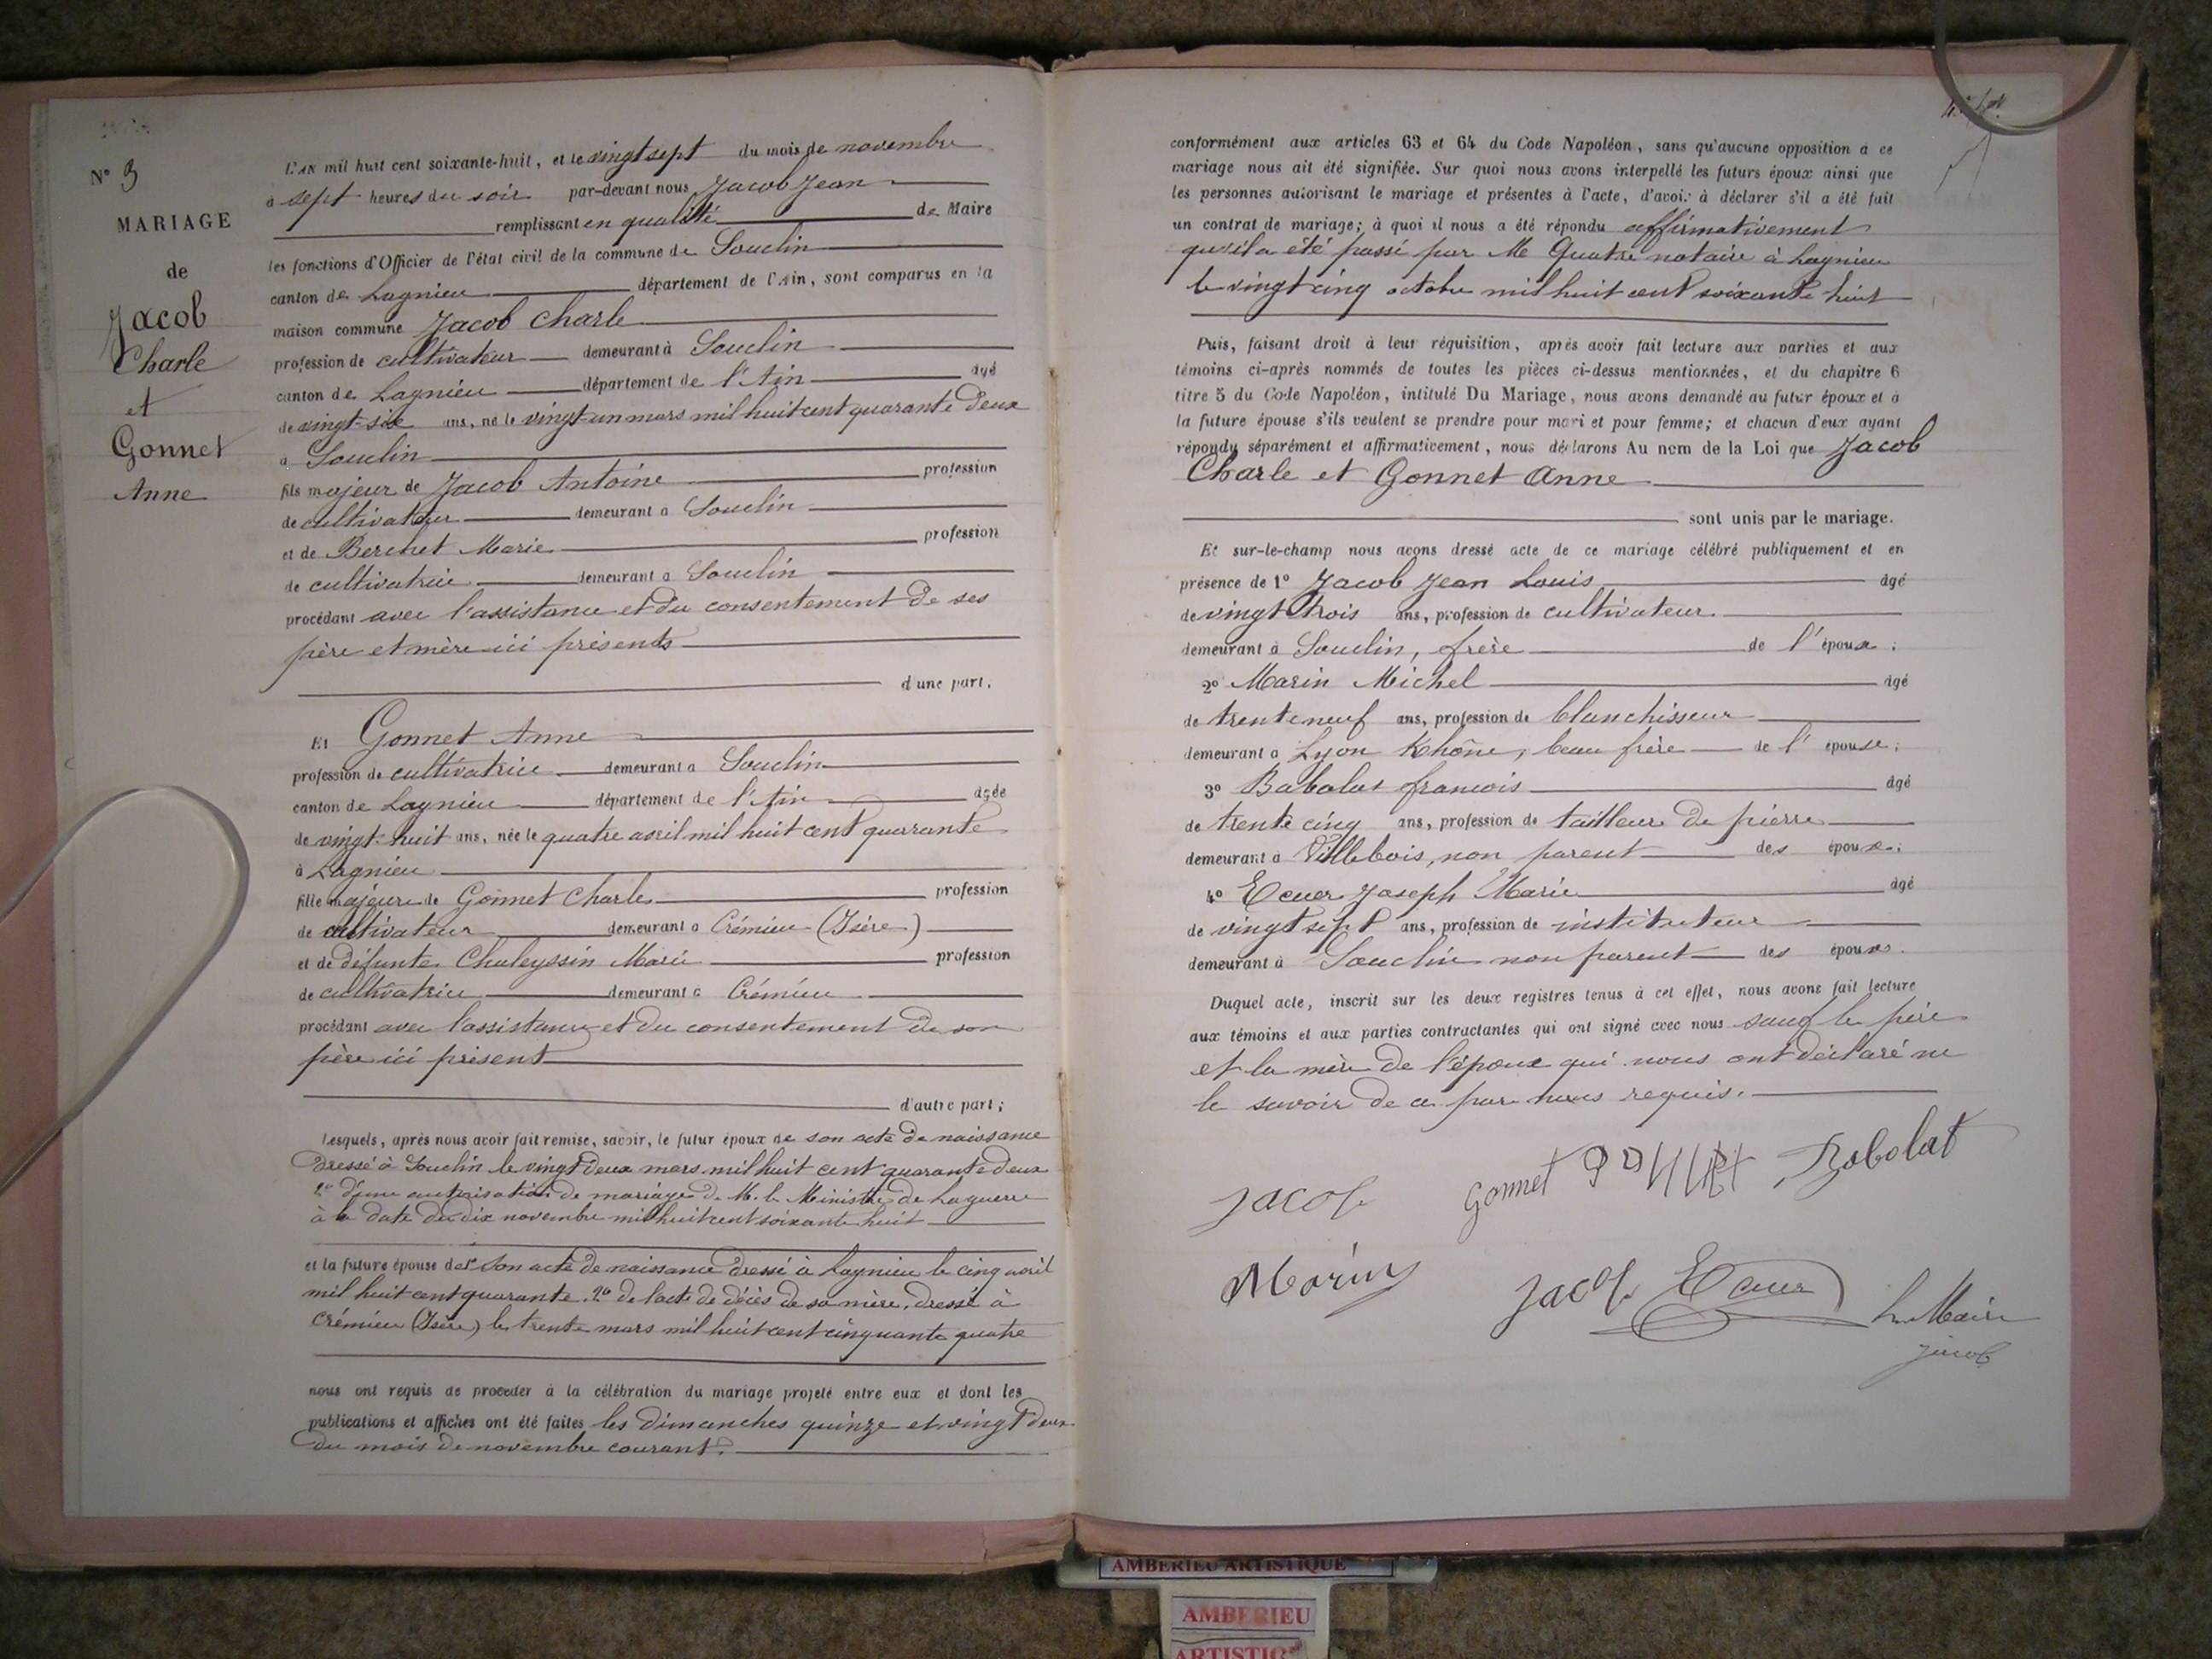 N° 3
MARIAGE
de
Jacob
Charle
et
Gonnet
Anne
L'AN mil huit cent soixante-huit, et le vingt sept du mois de novembre
à sept heures du soir par-devant nous Jacob Jean
remplissant en qualité de Maire
les fonctions d'Officier de l'état civil de la commune de Souclin
canton de Lagnieu département de l'Ain, sont comparus en la
maison commune Jacob Charle
profession de cultivateur demeurant à Souclin
canton de Lagnieu département de l'Ain âgé
de vingt-six ans, né le vingt-un mars mil huit cent quarante deux
à Souclin
fils majeur de Jacob Antoine profession
de cultivateur demeurant à Souclin
et de Berchet Marie profession
de cultivatrice demeurant à Souclin
procédant avec l'assistance et du consentement de ses
père et mère ici présents
d'une part.
Et Gonnet Anne
profession de cultivatrice demeurant à Souclin
canton de Lagnieu département de l'Ain âgée
de vingt-huit ans, née le quatre avril mil huit cent quarante
à Lagnieu
fille majeure de Gonnet Charles profession
de cultivateur demeurant à Crémieu (Isère)
et de défunte Chaleyssin Marie profession
de cultivatrice demeurant à Crémieu
procédant avec l'assistance et du consentement de son
père ici présent
d'autre part;
Lesquels, après nous avoir fait remise, savoir, le futur époux de son acte de naissance
dressé à Souclin le vingt deux mars mil huit cent quarante deux
2° d'une autorisation de mariage de M. le Ministre de la guerre
à la date du dix novembre mil huit cent soixante huit
et la future épouse de 1° son acte de naissance dressé à Lagnieu le cinq avril
mil huit cent quarante. 2° de l'acte de décès de sa mère, dressé à
Crémieu (Isère) le trente mars mil huit cent cinquante quatre
nous ont requis de procéder à la célébration du mariage projeté entre eux et dont les
publications et affiches ont été faites les dimanches quinze et vingt deux
du mois de novembre courant.
conformément aux articles 63 et 64 du Code Napoléon, sans qu'aucune opposition à ce
mariage nous ait été signifiée. Sur quoi nous avons interpellé les futurs époux ainsi que
les personnes autorisant le mariage et présentes à l'acte, d'avoir à déclarer s'il a été fait
un contrat de mariage; à quoi il nous a été répondu affirmativement
qu'il a été passé par Me Quatre notaire à Lagnieu
le vingt cinq octobre mil huit cent soixante huit
Puis, faisant droit à leur réquisition, après avoir fait lecture aux parties et aux
témoins ci-après nommés de toutes les pièces ci-dessus mentionnées, et du chapitre 6
titre 5 du Code Napoléon, intitulé Du Mariage, nous avons demandé au futur époux et à
la future épouse s'ils veulent se prendre pour mari et pour femme; et chacun d'eux ayant
répondu séparément et affirmativement, nous déclarons Au nom de la Loi que Jacob
Charle et Gonnet Anne
sont unis par le mariage.
Et sur-le-champ nous avons dressé acte de ce mariage célébré publiquement et en
présence de 1° Jacob Jean Louis âgé
de vingt trois ans, profession de cultivateur
demeurant à Souclin, frère de l'époux;
2° Marin Michel âgé
de trente neuf ans, profession de blanchisseur
demeurant à Lyon Rhône, beau frère de l'épouse;
3° Babolat francois âgé
de trente cinq ans, profession de tailleur de pierre
demeurant à Villebois, non parent des époux;
4° Ecuer Joseph Marie âgé
de vingt sept ans, profession de instituteur
demeurant à Souclin non parent des époux.
Duquel acte, inscrit sur les deux registres tenus à cet effet, nous avons fait lecture
aux témoins et aux parties contractantes qui ont signé avec nous sauf le père
et la mère de l'époux qui nous ont déclaré ne
le savoir de ce par nous requis.
Jacob Gonnet Babolat
Marin Jacob Ecuer Le Maire
Jacob
AMBERIEU ARTISTIQUE
AMBERIEU